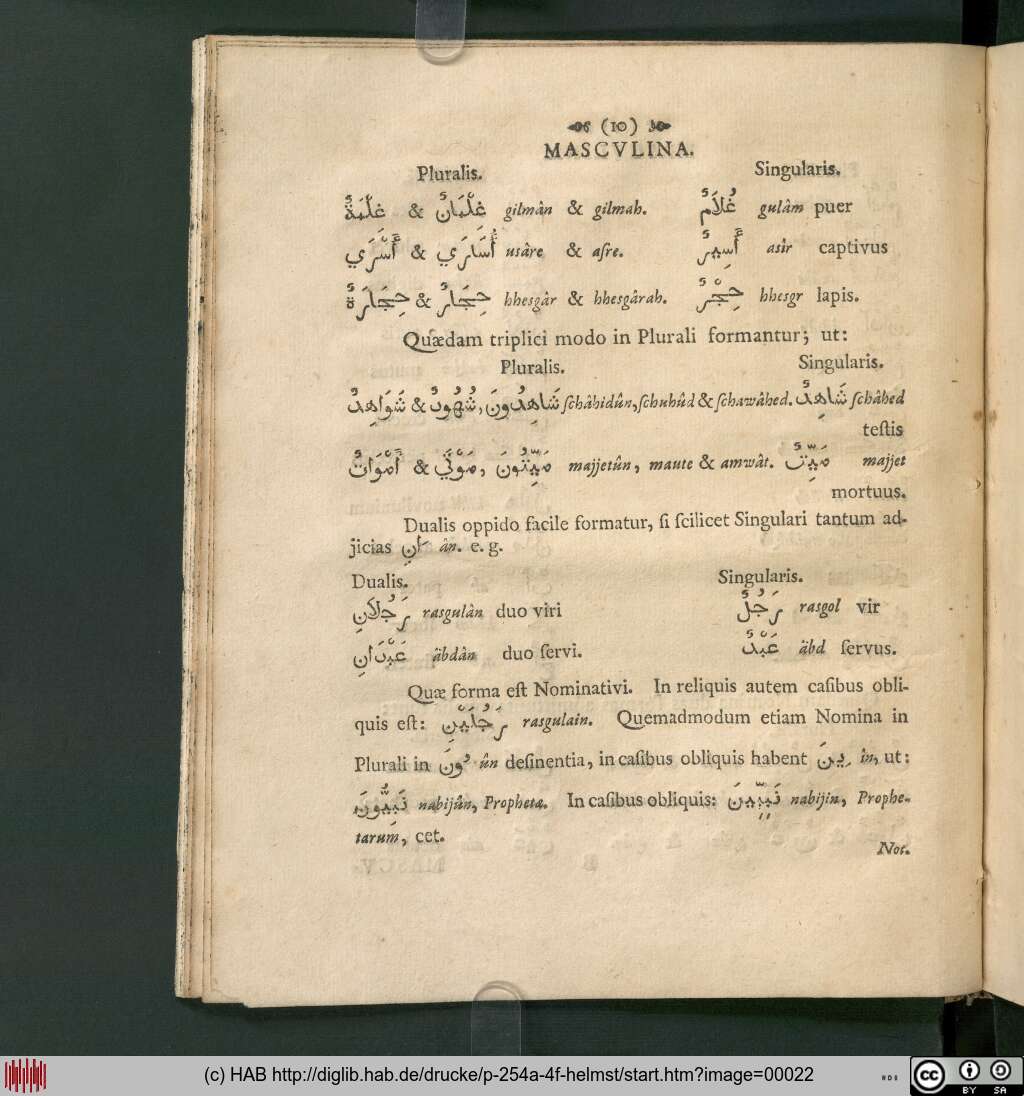 (10)
MASCVLINA.
Pluralis. Singularis.
غِلْمَةٌ & غِلْمَانٌ gilmân & gilmah. غُلَامٌ gulâm puer
أَسْرَي & أُسَارَي usâre & aſre. أَسِيرٌ asîr captivus
حِجَارَةٌ & حِجَارٌ hhesgâr & hhesgârah. حِجْرٌ hhesgr lapis.
Quædam triplici modo in Plurali formantur; ut:
Pluralis. Singularis.
شَوَاهِدٌ & شُهُودٌ, شَاهِدُونَ ſchâhidûn, ſchuhûd & ſchawâhed. شَاهِدٌ ſchâhed
teſtis
أَمْوَاتٌ & مَوْتَي, مَيِّتُونَ majjetûn, maute & amwât. مَيِّتٌ majjet
mortuus.
Dualis oppido facile formatur, ſi ſcilicet Singulari tantum ad-
jicias َانِ ân. e. g.
Dualis. Singularis.
رَجُلَانِ rasgulân duo viri رَجُلٌ rasgol vir
عَبْدَانِ äbdân duo ſervi. عَبْدٌ äbd ſervus.
Quæ forma eſt Nominativi. In reliquis autem caſibus obli-
quis eſt: رَجُلَيْنِ rasgulain. Quemadmodum etiam Nomina in
Plurali in ُونَ ûn deſinentia, in caſibus obliquis habent ِينَ în, ut:
نَبِيُّونَ nabijûn, Prophetæ. In caſibus obliquis: نَبِيِّينَ nabijin, Prophe-
tarum, cet.
Not.
(c) HAB http://diglib.hab.de/drucke/p-254a-4f-helmst/start.htm?image=00022
cc BY SA